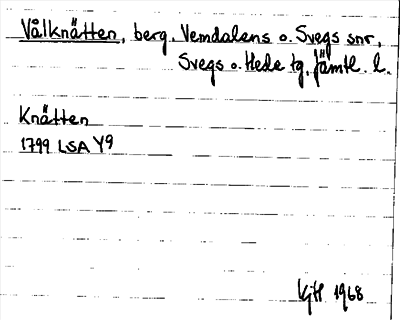 Vålknätten, berg. Vemdalens o. Svegs snr,
Svegs o. Hede tg. Jämtl. l.
Knätten
1799 LSA Y9
KjH 1968